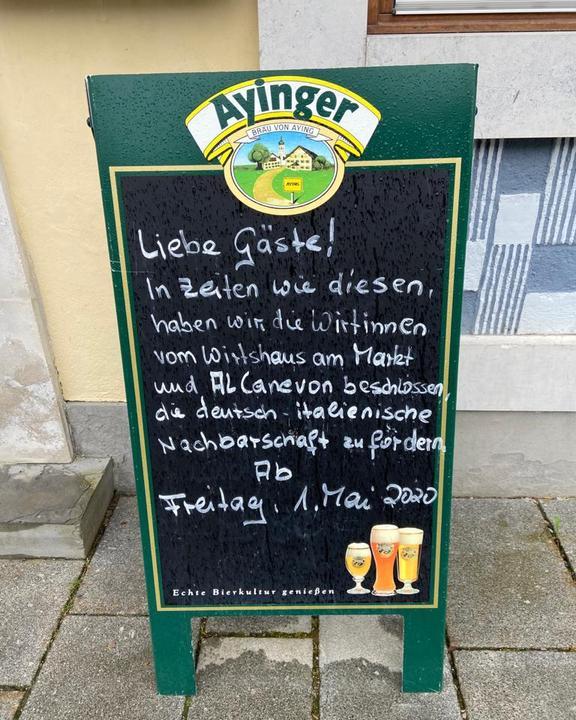 Ayinger
BRÄU VON AYING
AYING
Liebe Gäste!
In Zeiten wie diesen,
haben wir die Wirtinnen
vom Wirtshaus am Markt
und AL Canevon beschlossen,
die deutsch-italienische
Nachbarschaft zu fördern
Ab
Freitag, 1. Mai 2020
Echte Bierkultur genießen